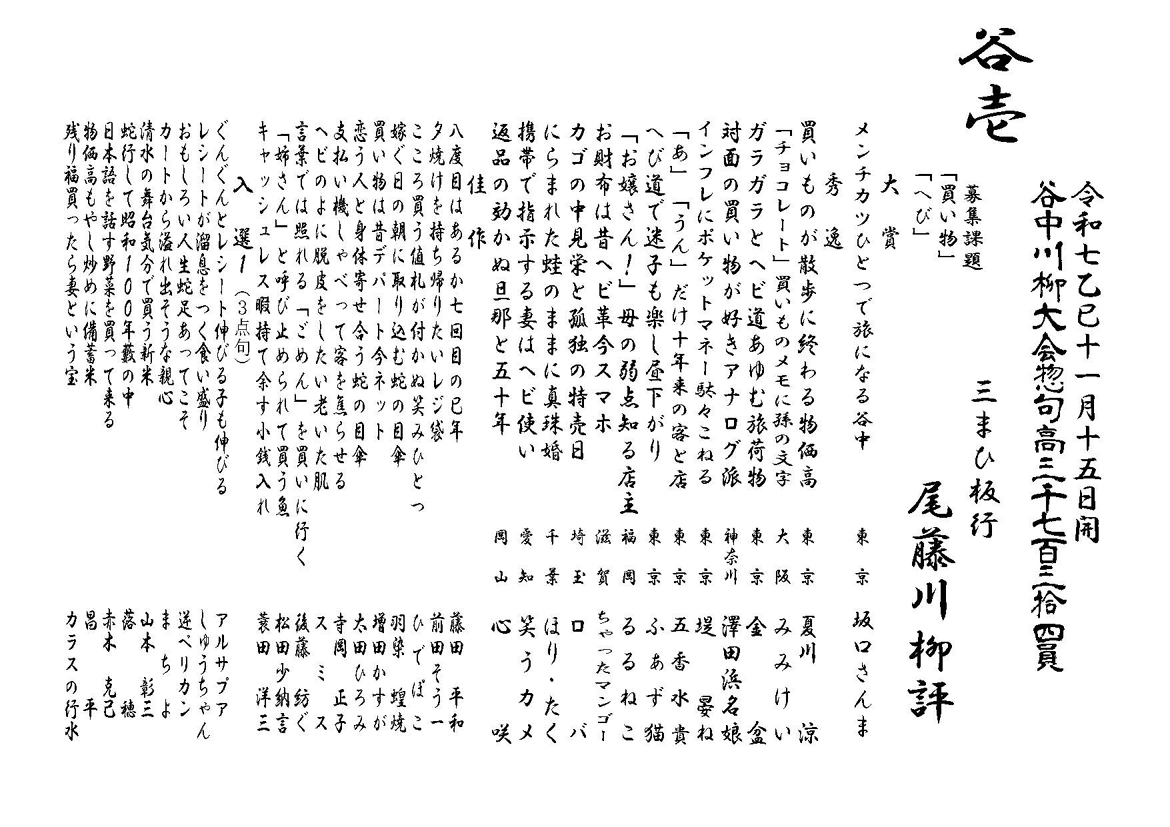 谷壱
令和七乙巳十一月十五日開
谷中川柳大会惣句高三千七百三拾四員
募集課題
「買い物」
「へび」
三まひ板行
尾藤川柳評
大賞
メンチカツひとつで旅になる谷中 東京 坂口さんま
秀逸
買いものが散歩に終わる物価高 東京 夏川涼
「チョコレート」買いものメモに孫の文字 大阪 みみけい
ガラガラとヘビ道あゆむ旅荷物 東京 金盆
対面の買い物が好きアナログ派 神奈川 澤田浜名娘
インフレにポケットマネー駄々こねる 東京 堤晏ね
「あ」「うん」だけ十年来の客と店 東京 五香水貴
へび道で迷子も楽し昼下がり 東京 ふあず猫
「お嬢さん!」母の弱点知る店主 福岡 るるねこ
お財布は昔ヘビ革今スマホ 滋賀 ちゃったマンゴー
カゴの中見栄と孤独の特売日 埼玉 ロバ
にらまれた蛙のままに真珠婚 千葉 ほり・たく
携帯で指示する妻はヘビ使い 愛知 笑うカメ
返品の効かぬ旦那と五十年 岡山 心咲
佳作
八度目はあるか七回目の巳年 藤田平和
夕焼けを持ち帰りたいレジ袋 前田そう一
こころ買う値札が付かぬ笑みひとつ ひでぽこ
嫁ぐ日の朝に取り込む蛇の目傘 羽染蝗焼
買い物は昔デパート今ネット 増田かすが
恋う人と身体寄せ合う蛇の目傘 太田ひろみ
支払い機しゃべって客を焦らせる 寺岡正子
ヘビのよに脱皮をしたい老いた肌 スミス
言葉では照れる「ごめん」を買いに行く 後藤紡ぐ
「姉さん」と呼び止められて買う魚 松田少納言
キャッシュレス暇持て余す小銭入れ 蓑田洋三
入選1(3点句)
ぐんぐんとレシート伸びる子も伸びる アルサプア
レシートが溜息をつく食い盛り しゅうちゃん
おもしろい人生蛇足あってこそ 逆ペリカン
カートから溢れ出そうな親心 まちよ
清水の舞台気分で買う新米 山本彰三
蛇行して昭和100年藪の中 落穂
日本語を話す野菜を買って来る 赤木克己
物価高もやし炒めに備蓄米 昌平
残り福買ったら妻という宝 カラスの行水